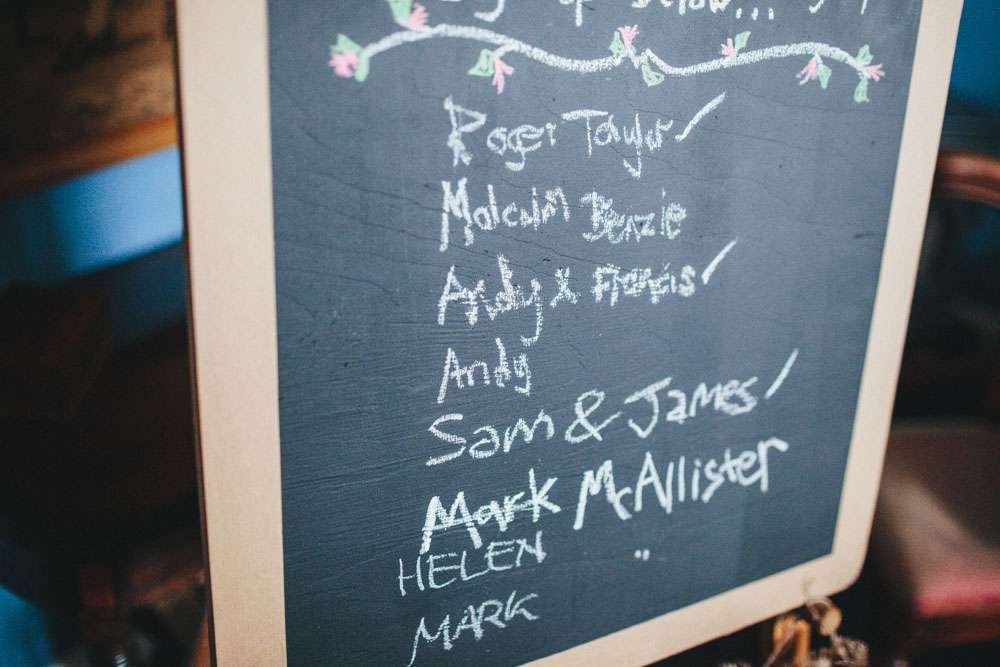 below...
Roger Taylor ✓
Malcolm Benzie
Andy & Francis ✓
Andy
Sam & James ✓
Mark McAllister
HELEN "
MARK